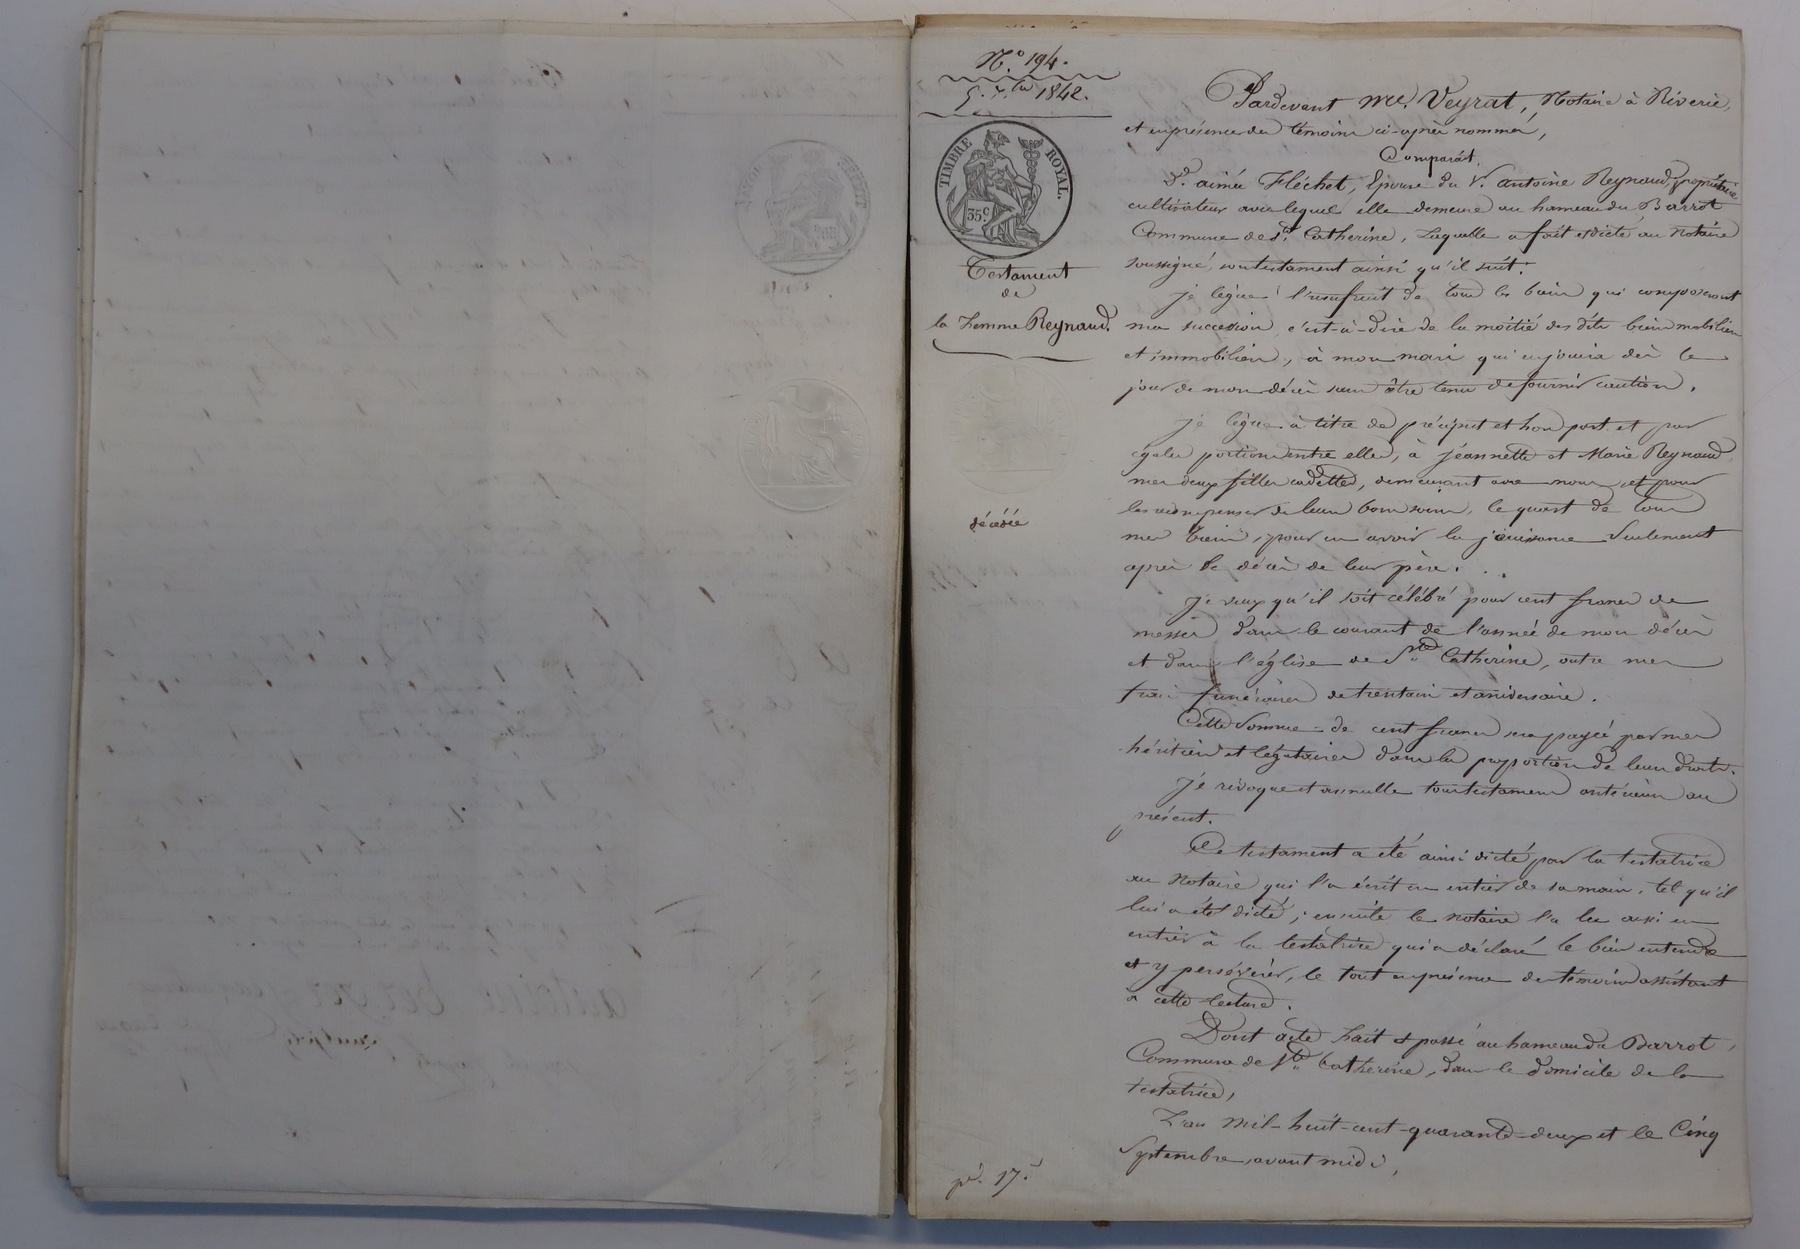 N.° 194.
5. 7.bre 1842.
TIMBRE ROYAL.
35.c
Testament
de
la femme Reynaud.
décédée
Pardevant Me. Veyrat, Notaire à Riverie,
et en présence des témoins ci-après nommés,
Comparaît
De. aimée Fléchet, Epouse du Sr. antoine Reynaud, propriétaire
cultivateur avec lequel elle demeure au hameau du Barrot
Commune de Ste. Catherine, Laquelle a fait et dicté au Notaire
soussigné, son testament ainsi qu'il suit:
je lègue l'usufruit de tous les biens qui composeront
ma succession c'est-à-dire de la moitié des dits biens mobiliers
et immobiliers, à mon mari qui en jouira dès le
jour de mon décès sans être tenu de fournir caution.
je lègue à titre de préciput et hors part et par
égales portions entre elles, à jéannette et Marie Reynaud
mes deux filles cadettes, demeurant avec nous, et pour
les récompenser de leurs bons soins, le quart de tous
mes biens, pour en avoir la jouissance seulement
après le décès de leur père.
je veux qu'il soit célébré pour cent francs de
messes dans le courant de l'année de mon décès
et dans l'église de Ste Catherine, outre mes
frais funéraires de trentain et aniversaire.
Cette somme de cent francs sera payée par mes
héritiers et légataires dans la proportion de leurs droits.
Jé révoque et annulle tous testamens antérieurs au
présent.
Ce testament a été ainsi dicté par la testatrice
au Notaire qui l'a écrit en entier de sa main, tel qu'il
lui a été dicté; ensuite le notaire l'a lu aussi en
entier à la testatrice qui a déclaré le bien entendre
et y persévérer, le tout en présence des témoins assistant
à cette lecture.
Dont acte fait et passé au hameau du Barrot,
Commune de Ste Catherine, dans le domicile de la
testatrice,
L'an mil-huit-cent-quarante-deux et le Cinq
Septembre avant midi,